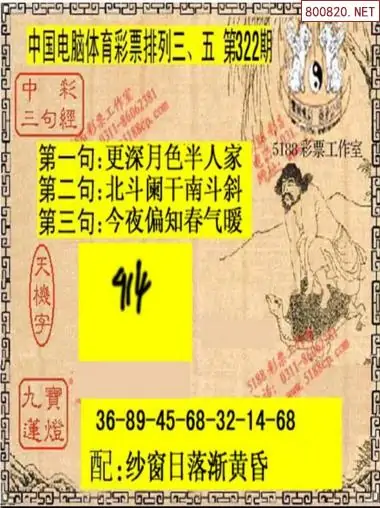 800820.NET
中国电脑体育彩票排列三、五 第322期
中彩
三句經
5188彩票工作室
第一句:更深月色半人家
第二句:北斗阑干南斗斜
第三句:今夜偏知春气暖
天機字
914
5188-彩票工作室
0311-86062381
5188cp.com
九寶
蓮燈
36-89-45-68-32-14-68
配:纱窗日落渐黄昏